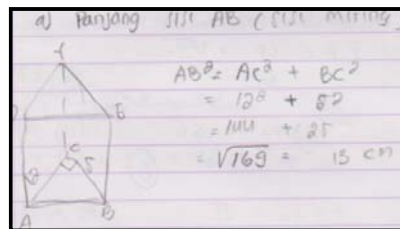 a) Panjang sisi AB (sisi miring)
AB² = AC² + BC²
= 12² + 5²
= 144 + 25
= √169 = 13 cm
E
C
5
A
B